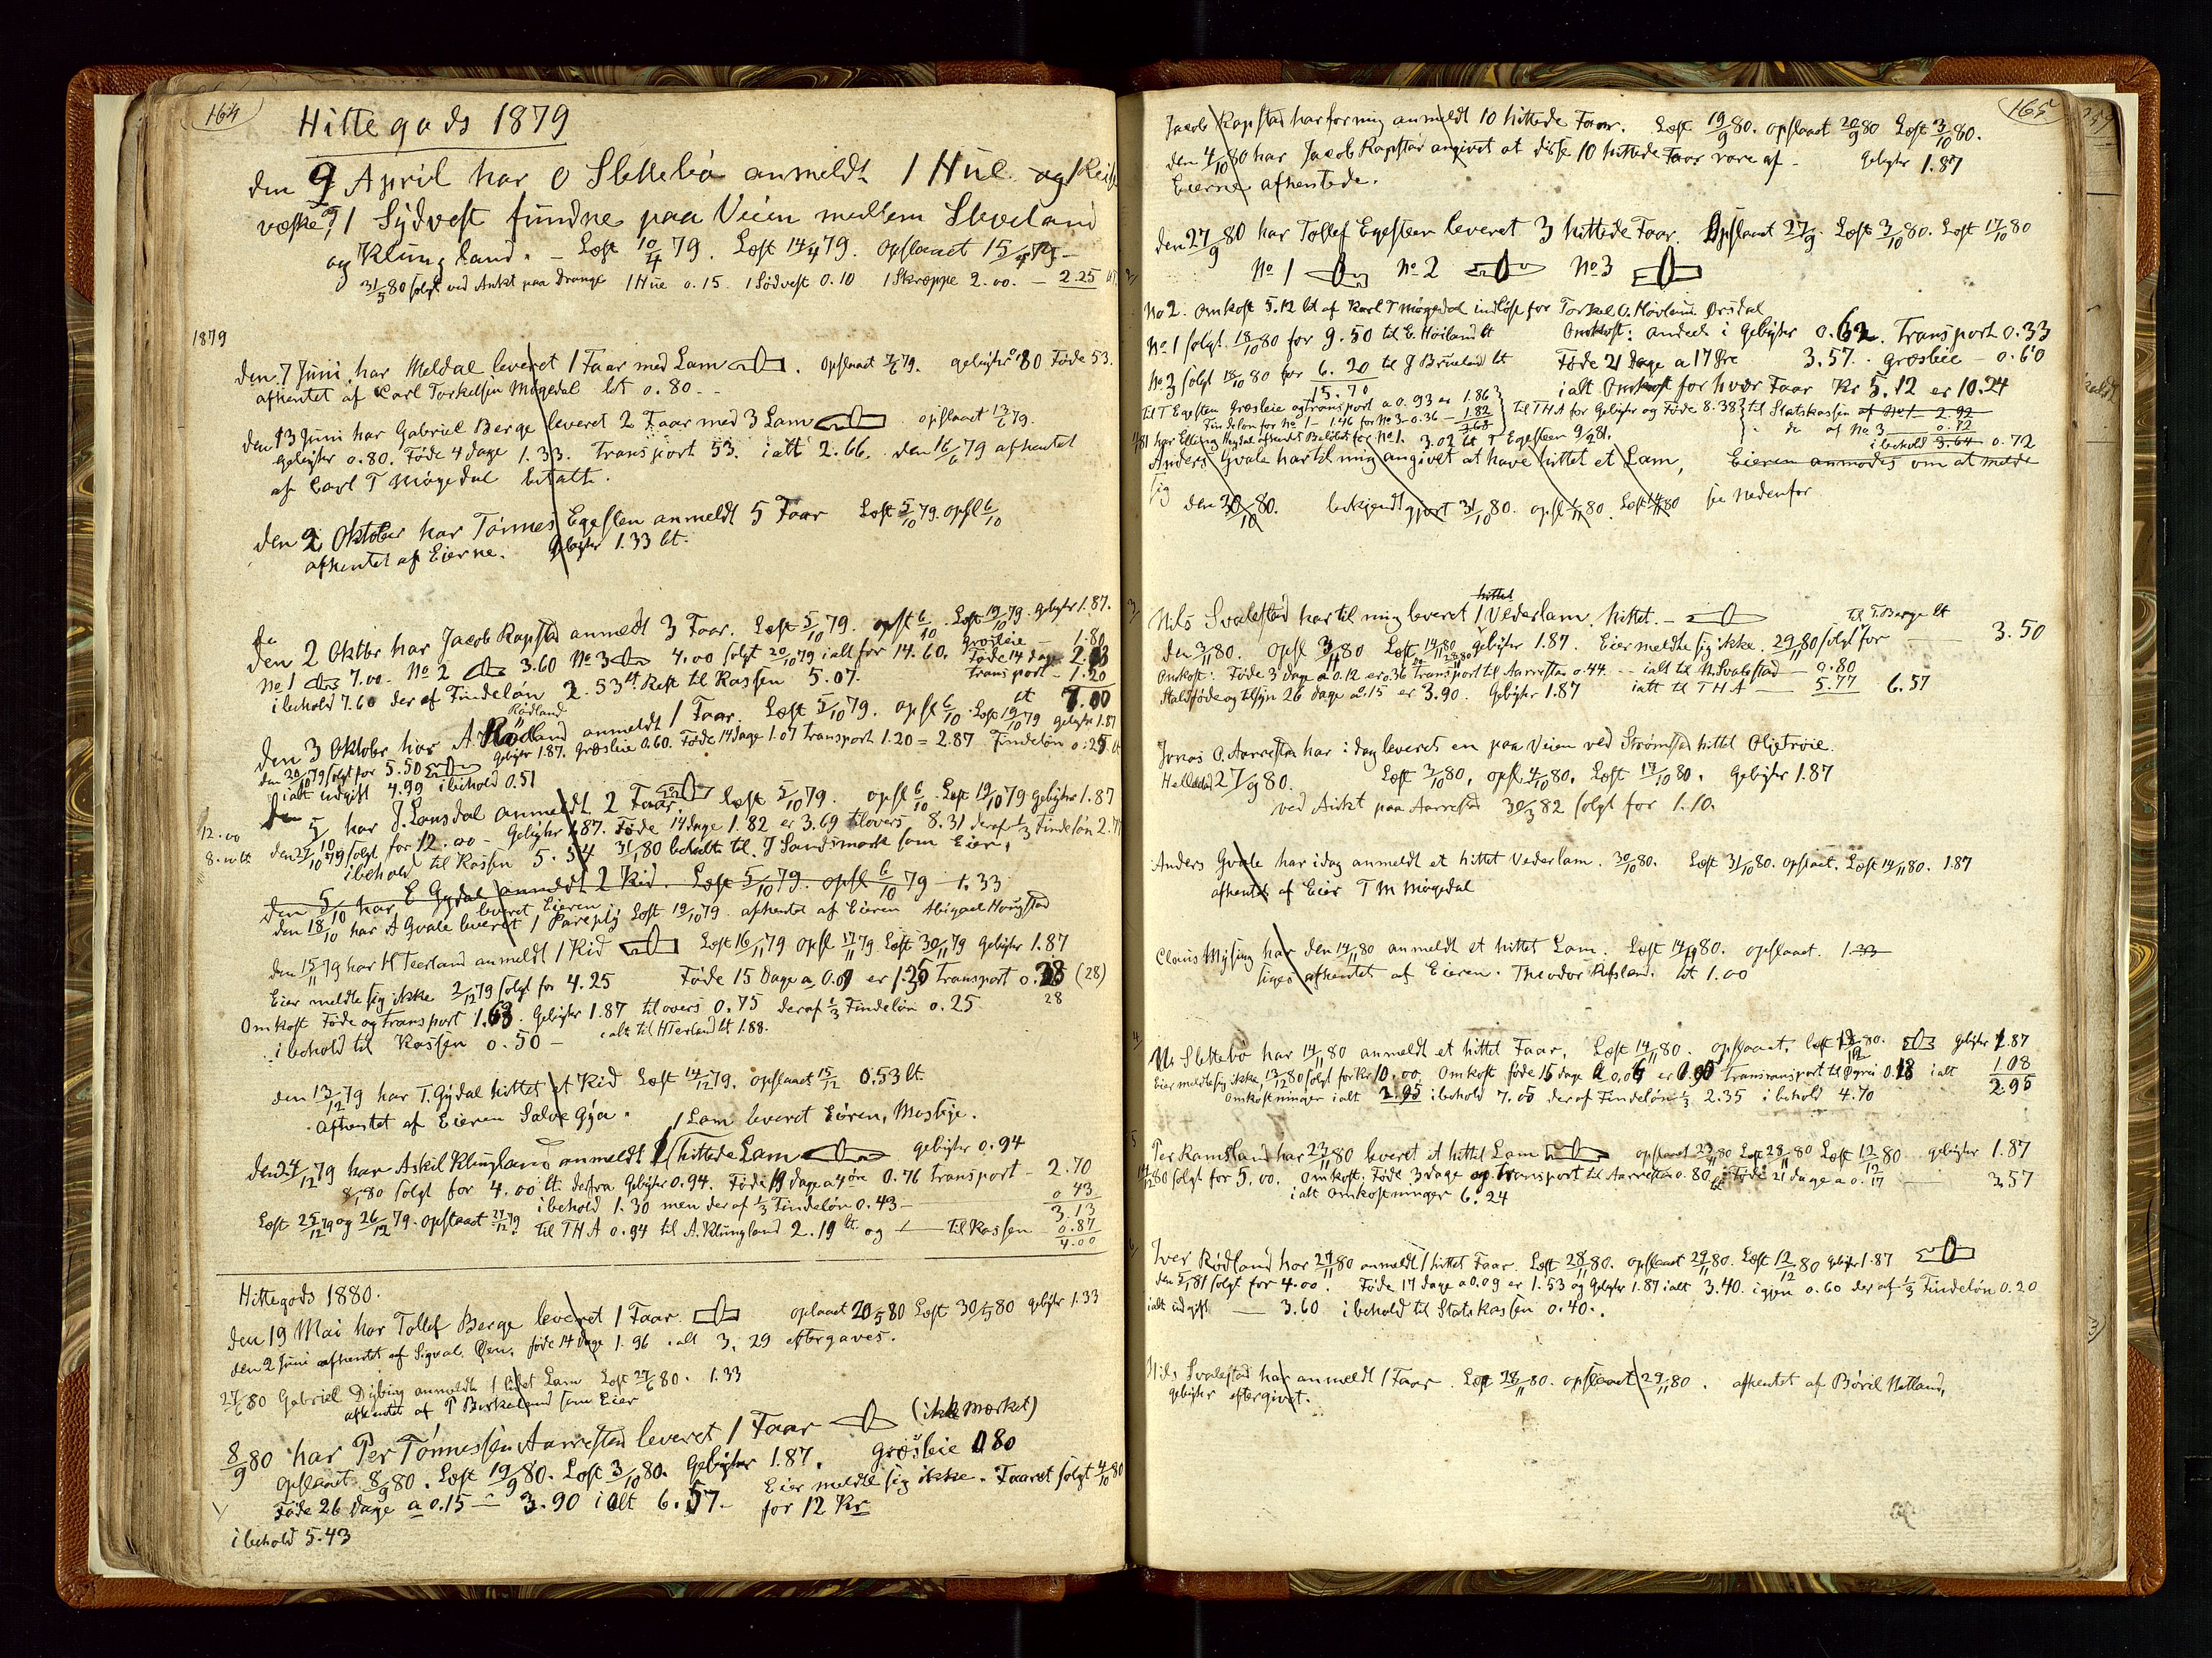 164
Hittegods 1879
den 9 April har O Slettebø anmeldt 1 Hue og 1 Reise
væske, og 1 Sydvest fundne paa Veien mellem Sleveland
og Klungland. – Læst 10/4 79. Læst 14/4 79. opslaaet 15/4 79 –
31/5 80 solgt ved Aukt paa Drange 1 Hue 0.15 1 Sødvest 0.10 1 Skræppe 2.00. – 2.25
1879
den 7 Juni har Meldal leveret 1 Faar med Lam. opslaaet 7/6 79. gebyhr 80 Føde 53.
afhentet af Carl Torkelsen Møgedal bt 0.80 –
den 13 Juni har Gabriel Berge leveret 2 Faar med 3 Lam opslaaet 13/6 79.
Gebyhr 0.80. Føde 4 dage 1.33. Transport 53. ialt 2.66. den 16/6 79 afhentet
af Carl T Møgedal betalt.
den 2 Oktober har Tønnes Egesten anmeldt 5 Faar Læst 5/10 79. opsl 6/10
afhentet af Eierne. Gebyhr 1.33 bt.
den 2 Oktbr har Jacob Rapstad anmeldt 3 Faar. Læst 5/10 79. opsl 6/10. Læst 19/10 79. Gebyhr 1.87.
Græsleie – 1.80
No 1 7.00. No 2 3.60 No 3 4.00 solgt 20/10 79 ialt for 14.60. Føde 14 dage
i behold 7.60 deraf Findeløn 2.53 bt Rest til Kassen 5.07. transport – 1.20
bt 7.00
Rødland
den 3 Oktobr har A Rødland anmeldt 1 Faar. Læst 5/10 79. opsl 6/10. Læst 19/10 79 gebyhr 1.87
den 20/10 79 solgt for 5.50 Gebyhr 1.87. Græsleie 0.60. Føde 14 dage 1.07 Transport 1.20 = 2.87 Findeløn 0.25
ialt udgift 4.99 i behold 0.51
den 5/10 har J. Lonsdal anmeldt 2 Faar. læst 5/10 79. opsl 6/10. Læst 19/10 79 Gebyhr 1.87
12.00
den 20/10 79 solgt for 12.00 – Gebyhr 1.87. Føde 14 dage 1.82 er 3.69 tilovers 8.31 deraf 1/3 Findeløn 2.77
i behold til Kassen 5.54 31/1 80 betalt til J Sandsmark som Eier,
den 5/10 har E Gydal anmeldt 2 Kid. Læst 5/10 79. opsl 6/10 79 – 1.33
leveret Eieren
den 18/10 har A Gvale leveret 1 Pareplÿ Læst 19/10 79. afhentet af Eieren Abigael Haugstad
den 15/11 79 har H Teerland anmeldt 1 Kid Læst 16/11 79 opsl 17/11 79 Læst 30/11 79 Gebyhr 1.87
Eier meldte sig ikke 2/12 79 solgt for 4.25 Føde 15 Dage a 0.09 er 1.35 Transport 0.28 (28)
28
Omkost Føde og Transport 1.63. Gebyhr 1.87 tilovers 0.75 deraf 1/3 Findeløn 0.25
i behold til Kassen 0.50 – ialt til H Terland bt 1.88.
den 13/12 79 har T. Gydal hittet et Kid Læst 14/12 79. opslaaet 15/12 0.53 bt.
afhentet af Eieren Salve Gya. 1 Lam leveret Eieren, Mosbye.
den 24/12 79 har Askil Klungland anmeldt 1 hittede Lam gebyhr 0.94
8/1 80 solgt for 4.00 bt. desfra Gebyhr 0.94. Føde 19 dage a 4 øre 0.76 transport – 2.70
i behold 1.30 men deraf 1/3 Findeløn 0.43 – 0 43
3.13
Læst 25/12 79 og 26/12 79. opslaaet 27/12 79 Til THA 0.94 til A. Klungland 2.19 bt. og Til Kassen 0.87
4.00
Hittegods 1880.
den 19 Mai har Tollef Berge leveret 1 Faar opslaaet 20/5 80 Læst 30/5 80 gebyhr 1.33
den 2 Juni afhentet af Sigval Øen. føde 14 dage 1.96 ialt 3.29 eftergaves.
27/6 80 Gabriel Dybing anmeldt 1 hittet Lam Læst 27/6 80. 1.33
afhentet af P Birkeland som Eier
8/9 80 har Per Tønnessen Aarrestad leveret 1 Faar (ikke mærket)
opslaaet 8/9 80. Læst 19/9 80. Læst 3/10 80. Gebyhr 1.87. Græsleie 0.80
Føde 26 dage a 0.15 – 3.90 ialt 6.57 – Eier meldte sig ikke. Faaret solgt 4/10 80
for 12 Kr
i behold 5.43
165
Jacob Rapstad har for mig anmeldt 10 hittede Faar. Læst 19/9 80. opslaaet 20/9 80 Læst 3/10 80.
den 4/10 80 har Jacob Rapstad angivet at disse 10 hittede Faar vare af – Gebyhr 1.87
Eierne afhentede.
den 27/9 80 har Tollef Egesteen leveret 3 hittede Faar. Opslaaet 27/9. Læst 3/10 80. Læst 17/10 80
No 1 No 2 No 3
No 2. Omkost 5.12 bt af Karl T Møgedal indløst for Torkel O. Hovland Ørsdal
No 1 solgt 18/10 80 for 9.50 til E. Høiland bt Omkost: andeel i Gebyhr 0.62. Transport 0.33
No 3 solgt 18/10 80 for 6.20 til J Brueland bt Føde 21 dage a 17 Øre 3.57. græsleie – 0.60
15.70 ialt Omkost for hver Faar Kr 5.12 er 10.24
til T Egesten Græsleie og transport a 0.93 er 1.86 til THA for Gebyhr og Føde 8.38 til Statskassen af No 1 – 2.92
Findeløn for No 1 – 1.46 for No 3 0.36 – 1.82 do af No 3 – 0.72
har Elling Høydal afhentet Beløbet for No 1. 3.02 bt. T Egesteen 9/2 81. i behold 3.64 0.72
Anders Gvale har til mig angivet at have hittet et Lam, Eieren anmodes om at melde
sig den 30/10 80. bekjendtgjort 31/10 80. opsl 1/11 80. Læst 14/11 80 see nedenfor
hittet
Nils Svalestad har til mig leveret 1 Vederlam. hittet. – Til T. Berge bt
den 3/11 80. opsl 3/11 80 Læst 14/11 80 Gebyhr 1.87. Eier meldte sig ikke. 29/11 80 solgt for – 3.50
Omkost: Føde 3 dage a 0.12 er 0.36 Transport til Aarrestad 0.44. – ialt til N. Svalestad – 0.80
Staldføde og tilsyn 26 dage a 0.15 er 3.90. Gebyhr 1.87 ialt til THA – 5.77 6.57
Jonas O. Aarrestad har i dag leveret en paa Veien ved Strømstad hittet Oljetrøie.
Helleland 27/9 80. Læst 3/10 80, opsl 4/10 80. Læst 17/10 80. Gebyhr 1.87
ved Aukt paa Aarrestad 30/3 82 solgt for 1.10.
Anders Gvale har idag anmeldt et hittet Vederlam. 30/10 80. Læst 31/10 80. opslaaet. Læst 14/11 80. 1.87
afhentet af Eier T M Møgedal
Claus Mysing har den 14/11 80 anmeldt et hittet Lam. Læst 14/11 80. opslaaet. 1.33
siges afhentet af Eieren. Theodor Refsland. bt 1.00
N. Slettebø har 14/11 80 anmeldt et hittet Faar. Læst 14/11 80. opslaaet. Læst 12/12 80. Gebyhr 1.87
Eier meldte sig ikke, 13/12 80 solgt for Kr 10.00. Omkost føde 15 dage a 0.06 er 0.90 Transport til 0.18 ialt 108
Omkostninger ialt 2.95 i behold 7.05 deraf Findeløn 1/3 2.35 i behold 4.70 2.95
Per Ramsland har 22/11 80 leveret et hittet Lam opslaaet 23/11 80 Læst 28/11 80 Læst 12/12 80 gebyhr 1.87
14/12 80 solgt for 5.00. Omkost. Føde 3 dage og Transport til Aarrestad 0.80 bt Føde 21 dage a 0.17 – 3.57
ialt Omkostninger 6.24
Iver Rødland har 27/11 80 anmeldt 1 hittet Faar. Læst 28/11 80. opslaaet 29/11 80. Læst 12/12 80 Gebyhr 1.87
den 5/1 81 solgt for 4.00. Føde 17 dage a 0.09 er 1.53 og Gebyhr 1.87 ialt 3.40. igjen 0.60 der af 1/3 Findeløn 0.20
ialt udgift – 3.60 i behold til Statskassen 0.40.
Nils Svalestad har anmeldt 1 Faar. Læst 28/11 80. opslaaet 29/11 80. afhentet af Børil Netland,
gebyhr eftergivet.